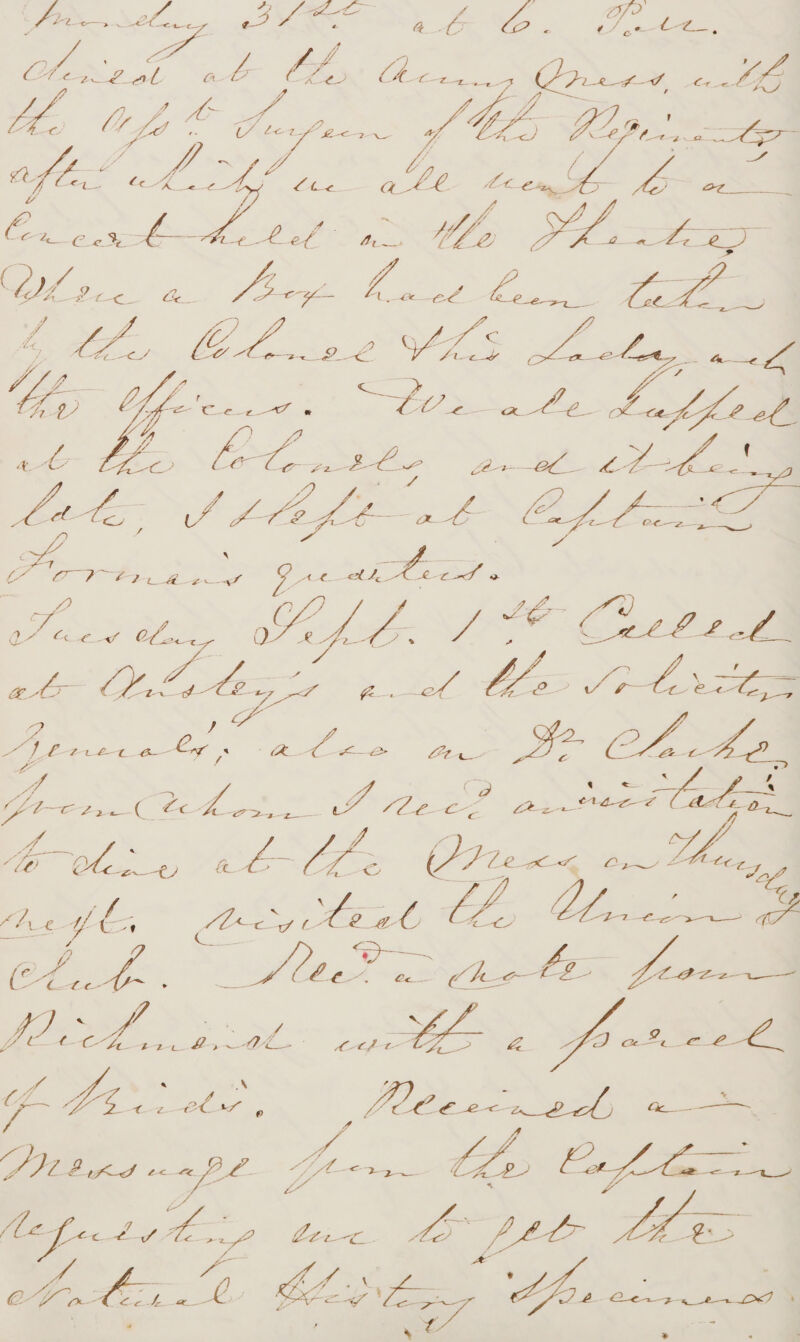 Monday 31st. at 6. P.M.
dined at the Army Mess, with
the Asst. Surgeon of the Regiment
after which we all went to a
Concert held in the Theatre,
Where a Box had been taken
by the Colonel & his Lady, and
the Officers. We all supped
at the Colonels, and it being
late, I slept at Captain
Forman's quarters.
Tuesday Sept. 1st. Called
at Anstey's and the Solicitor
Generals, also on Dr Clarke,
from whom I recd. an invitation
to dine at the Mess on Thursday
next. visited the Union
Club. Recd. a note from
Richmond with a parcel
of Birds. Received a
Messuage from the Captain
requesting me to get the
Natural History Specimens